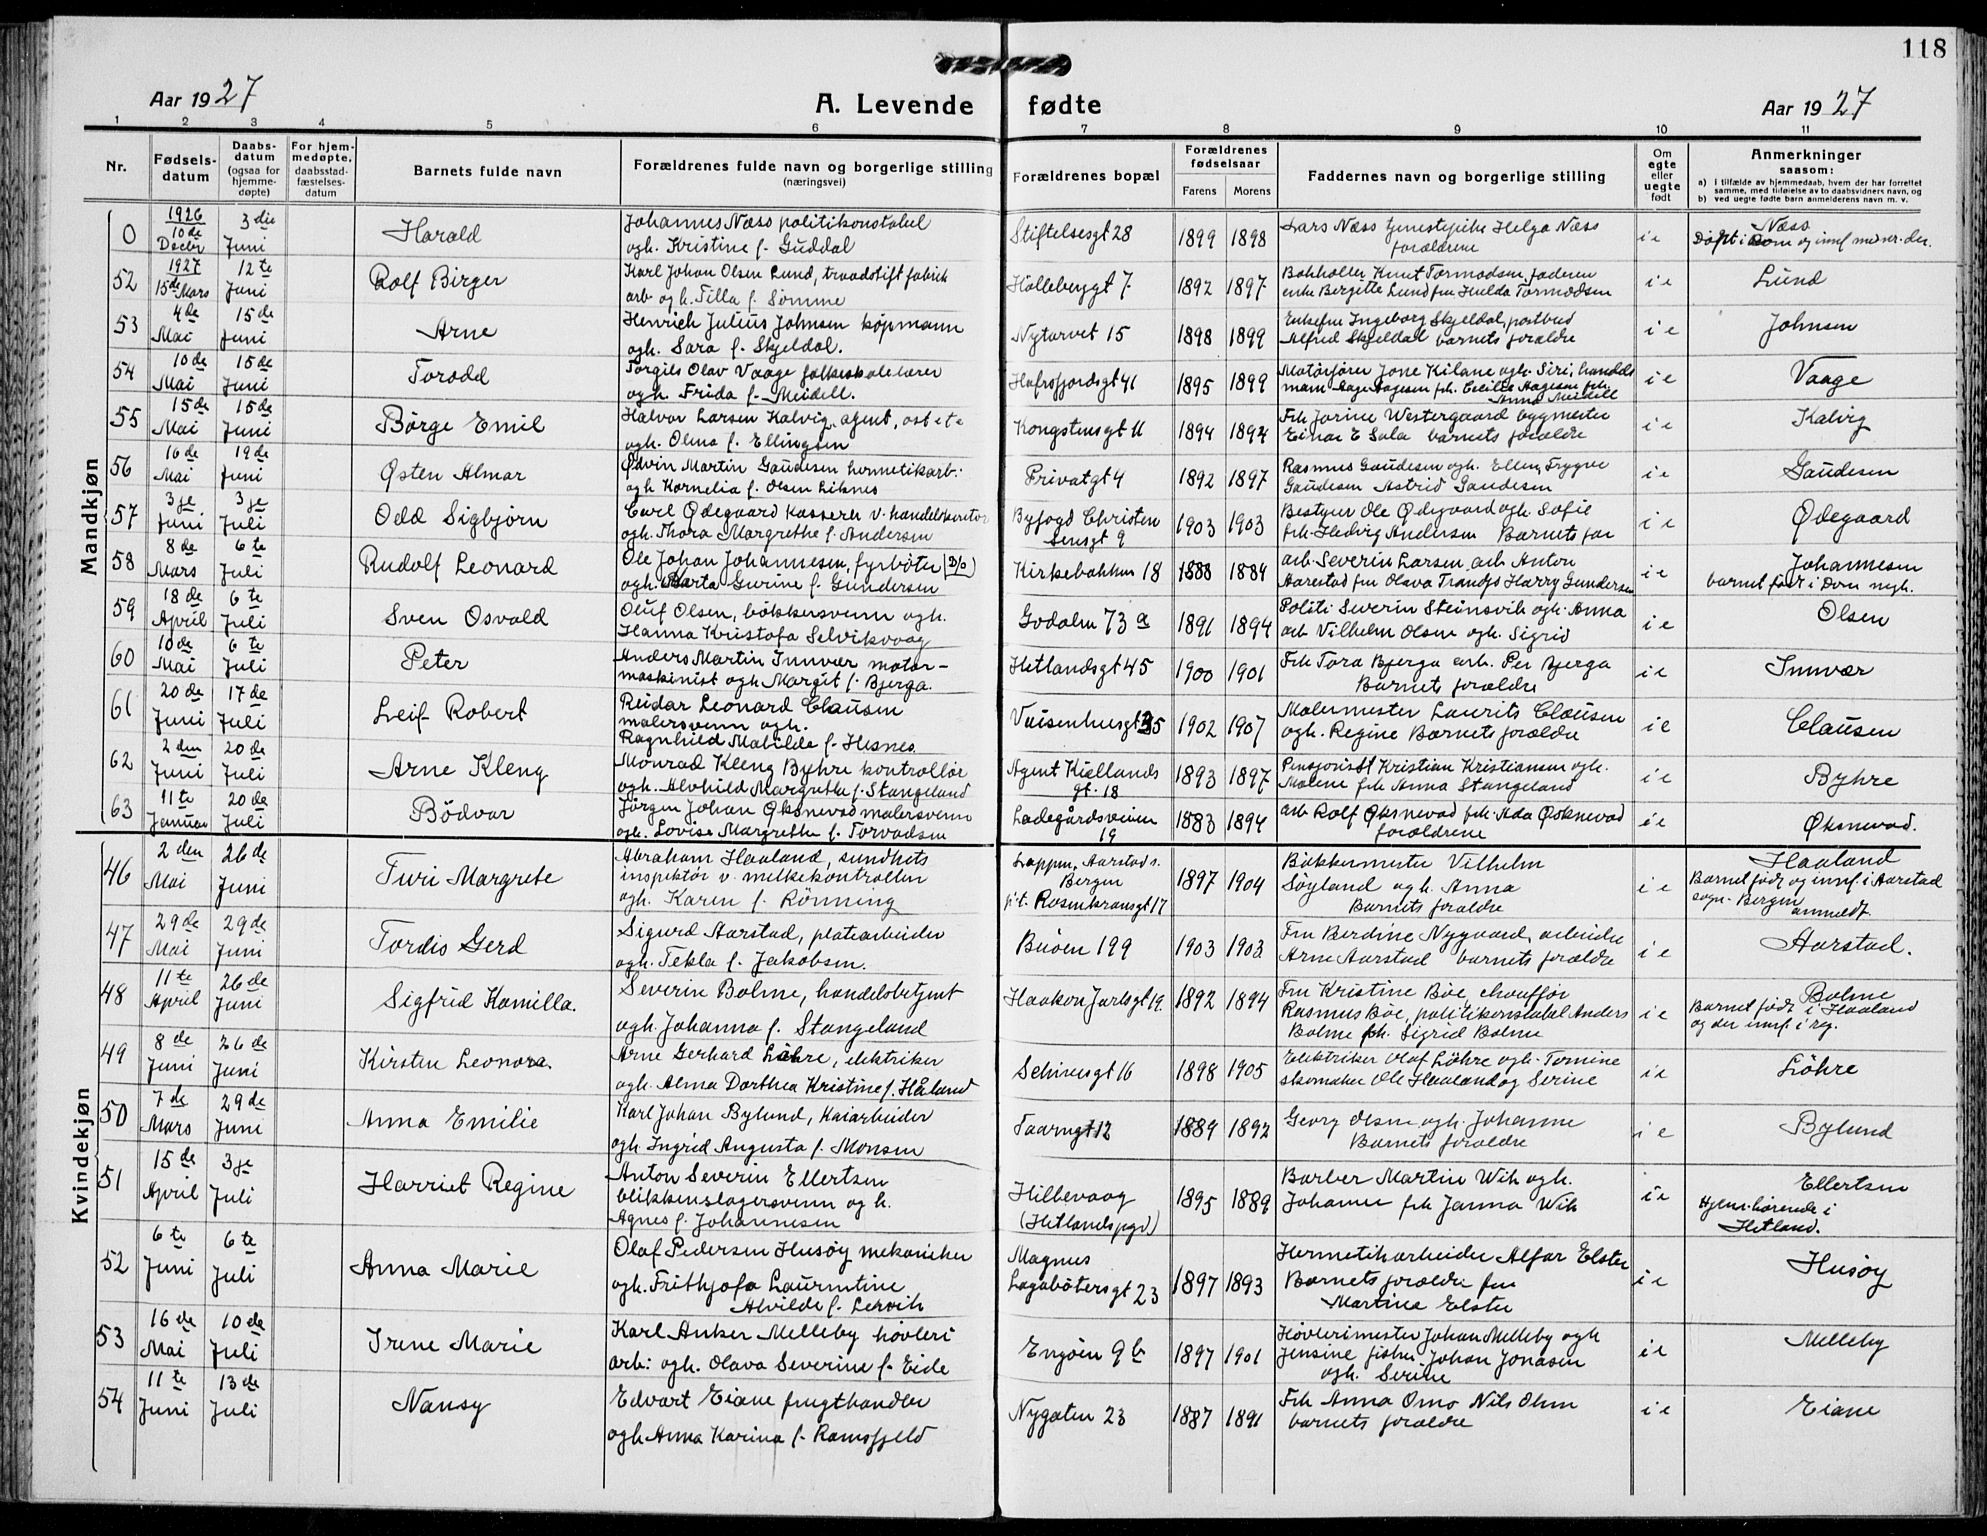 118
Aar 1927
A. Levende fødte
Aar 1927
1 2 3 4 5 6 7 8 9 10 11
Nr.
Fødsels-
datum
Daabs-
datum
(ogsaa for
hjemme-
døpte)
For hjem-
medøpte,
daabsstad-
fæstelses-
datum
Barnets fulde navn
Forældrenes fulde navn og borgerlige stilling
(næringsvei)
Forældrenes bopæl
Forældrenes
fødselsaar
Farens Morens
Faddernes navn og borgerlige stilling
Om
egte
eller
uegte
født
Anmerkninger
saasom:
a) I tilfælde av hjemmedaab, hvem der har forrettet
samme, med tilføielse av to daabsvidners navn, og
b) ved uegte fødte barn anmelderens navn m. v.
Mandkjøn
0
1926
10de
Decbr
3die
Juni
Harald
Johannes Næss politikonstabel
ogh. Kristine f. Guddal
Stiftelsesgt 28
1899 1898
Lars Næss tjenestepike Helga Næss
forældrene
i e
Næss
52
1927
15de Mars
12te
Juni
Rolf Birger
Karl Johan Olsen Lund, traadstift fabrik
arb og h. Tilla f. Sømme
Hollebergt 7
1892 1897
Bokholder Knut Tormodsen, faderen
enke Bergitte Lund fru Hulda Tormodsen
i e
Lund
53
4de
Mai
15de
Juni
Arne
Henrich Julius Johnsen køpmann
ogh. Sara f. Skjeldal.
Nytorvet 15
1898 1899
Enkefru Ingeborg Skjeldal, postbud
Alfred Skjeldal barnets forældre
i e
Johnsen
54
10de
Mai
15de
Juni
Torodd
Torgils Olav Vaage folkeskolelærer
ogh. Frida f. Meidell.
Hafrsfjordsgt 41
1895 1899
Motorfører Jone Kilane ogh. Siri, handels
Anna Meidell
i e
Vaage
55
15de
Mai
15de
Juni
Børge Emil
Halvor Larsen Kalvig, agent, ost etc
ogh. Olma f. Ellingsen
Kongstensgt 11
1894 1894
Frk Jorine Westergaard bygmester
Einar E Sala barnets forældre
i e
Kalvig
56
16de
Mai
19de
Juni
Østen Almar
Ødvin Martin Gaudesen hermetikarb:
ogh Kornelia f. Olsen Liknes
Privatgt 4
1892 1897
Rasmus Gaudesen ogh. Ellen, Trygve
Gaudesen Astrid Gaudesen
i e
Gaudesen
57
3je
Juni
3je
Juli
Odd Sigbjørn
Carl Ødegaard kasserer v. handelskontor
ogh. Thora Margrethe f. Andersen
Byfogd Christen
sensgt 9
1903 1903
Bestyrer Ole Ødegaard ogh. Sofie
frk. Hedvig Andersen Barnets far
i e
Ødegaard
58
8de
Mars
6te
Juli
Rudolf Leonard
Ole Johan Johannesen, fyrbøter (D/s)
ogh. Marta Gurine f. Gundersen
Kirkebakken 18
1888 1884
arb. Severin Larsen, arb Anton
Aarestad fru Olava Tranøs Harry Gundersen
i e
Johannesen
59
18de
April
6te
Juli
Sven Osvald
Oluf Olsen, bøkkersvenn ogh.
Hanna Kristofa Selviksvaag
Godalen 73 a
1891 1894
Politi Severin Steinsvik ogh. Anna
arb Vilhelm Olsen ogh. Sigrid
i e
Olsen
60
10de
Mai
6te
Juli
Peter
Anders Martin Innvær motor-
maskinist ogh. Margit f. Bjerga.
Hetlandsgt 45
1900 1901
Frk Tora Bjerga arb. Per Bjerga
Barnets forældre
i e
Innvær
61
20de
Juni
17de
Juli
Leif Robert
Reidar Leonard Clausen
malersvenn ogh.
Ragnhild Matilde f. Hesnes
Vaisenhusgt 35
1902 1907
Malermester Laurits Clausen
ogh. Regine Barnets forældre
i e
Clausen
62
2den
Juni
20de
Juli
Arne Kleng
Monrad Kleng Byhre kontrollør
ogh. Alvhild Margrethe f. Stangeland
Agent Kiellands
gt. 18
1893 1897
Pensjonist Kristian Kristiansen ogh.
Malene frk Anna Stangeland
i e
Byhre
63
11te
Januar
20de
Juli
Bødvar
Jørgen Johan Øksnevad malersvenn
ogh. Lovise Margrethe f. Torvadsen
Ladegårdsveien
19
1883 1894
arb Rolf Øksnevad frk. Ada Øksnevad
forældrene
i e
Øksnevad.
Kvindekjøn
46
2den
Mai
26de
Juni
Turi Margrete
Abraham Haaland, sundhets
inspektør v. melkekontrollen
ogh. Karen f. Rønning
Lappen, Aarstad s.
Bergen
p.t. Rosenkransgt 17
1897 1904
Bøkkermester Vilhelm
Søyland ogh. Anna
Barnets forældre
i e
Haaland
Barnet født og innf. i Aarstad
sogn. Bergen
anmeldt
47
29de
Mai
29de
Juni
Tordis Gerd
Sigurd Aarstad, platearbeider
ogh. Tekla f. Jakobsen.
Buøen 199
1903 1903
Fru Berdine Nygaard, arbeider
Arne Aarstad barnets forældre
i e
Aarstad.
48
11te
April
26de
Juni
Sigfrid Kamilla.
Severin Bolme, handelsbetjent
ogh. Johanna f. Stangeland
Haakon Jarlsgt 19.
1892 1894
Fru Kristine Bøe, chauffør
Rasmus Bøe, politikonstabel Anders
Bolme frk. Sigrid Bolme
i e
Bolme
Barnet født i Haaland
og der innf. i reg.
49
8de
Juni
26de
Juni
Kirsten Leonora.
Arne Gerhard Løhre, elektriker
ogh. Alma Dorthea Kristine f. Håland
Schiøtzgt 16
1898 1905
Elektriker Olaf Løhre ogh. Tomine
skomaker Ole Haaland og Serine
i e
Løhre
50
7de
Mars
29de
Juni
Anna Emilie
Karl Johan Bylund, Kaiarbeider
ogh. Ingrid Augusta f. Monsen
Taarngt 12
1889 1892
Georg Olsen ogh. Johanne
Barnets forældre
i e
Bylund
51
15de
April
3je
Juli
Harriet Regine
Anton Severin Ellertsen
blikkenslagersvenn og h.
Agnes f. Johannesen
Hillevaag
(Hetlands pgd)
1895 1889
Barber Martin Wik ogh.
Johanne frk Janna Wik
i e
Ellertsen
Hjemhørende i
Hetland.
52
6te
Juni
6te
Juli
Anna Marie
Olaf Pedersen Husøy mekaniker
ogh. Frithjofa Laurentine
Alvilde f. Lervik
Magnus
Lagabøtersgt 23
1897 1893
Hermetikarbeider Alfar Elster
Barnets forældre fru
Martine Elster
i e
Husøy
53
16de
Mai
10de
Juli
Irene Marie
Karl Anker Melleby høvleri
arb: ogh. Olava Severine f. Eide
Engøien 9b
1897 1901
Høvlerimester Johan Melleby ogh
Jensine fisker Johan Jonasen
ogh. Serine
i e
Melleby
54
11te
Juni
13de
Juli
Nansy
Edvart Eiane frugthandler
ogh. Anna Karina f. Ramsfjeld
Nygaten 23
1887 1891
Frk Anna Omo Nils Ohm
barnets forældre
i e
Eiane